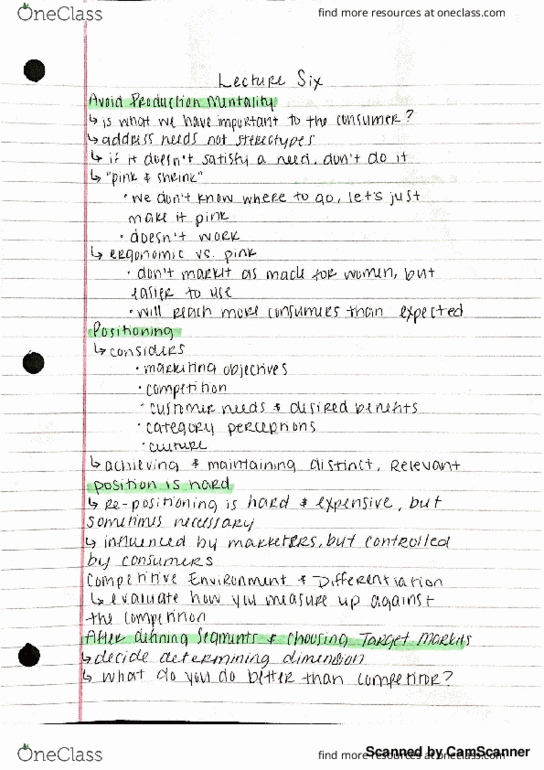 OneClass
find more resources at oneclass.com
Lecture Six
Avoid Production Mentality
↳ is what we have important to the consumer?
↳ address needs not stereotypes
↳ if it doesn't satisfy a need, don't do it
↳ "pink & shrink"
• we don't know where to go, let's just
make it pink
• doesn't work
↳ ergonomic vs. pink
• don't market as made for women, but
easier to use
• will reach more consumers than expected
Positioning
↳ considers
• marketing objectives
• competition
• customer needs & desired benefits
• category perceptions
• culture
↳ achieving & maintaining distinct, relevant
position is hard
↳ re-positioning is hard & expensive, but
sometimes necessary
↳ influenced by marketers, but controlled
by consumers
Competitive Environment & Differentiation
↳ evaluate how you measure up against
the competition
After defining Segments & choosing Target Markets
↳ decide determining dimension
↳ what do you do better than competitor?
OneClass
find more resources at oneclass.com
Scanned by CamScanner